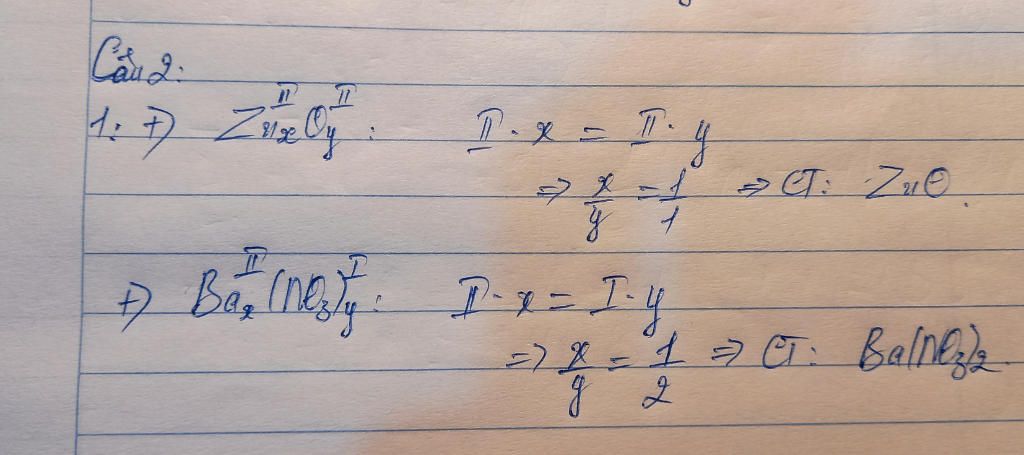 Câu 2:
1: +) Zn^{II}_x O^{II}_y : II · x = II · y
=> x/y = 1/1 => CT: ZnO.
+) Ba^{II}_x (NO_3)^{I}_y : II · x = I · y
=> x/y = 1/2 => CT: Ba(NO_3)_2.